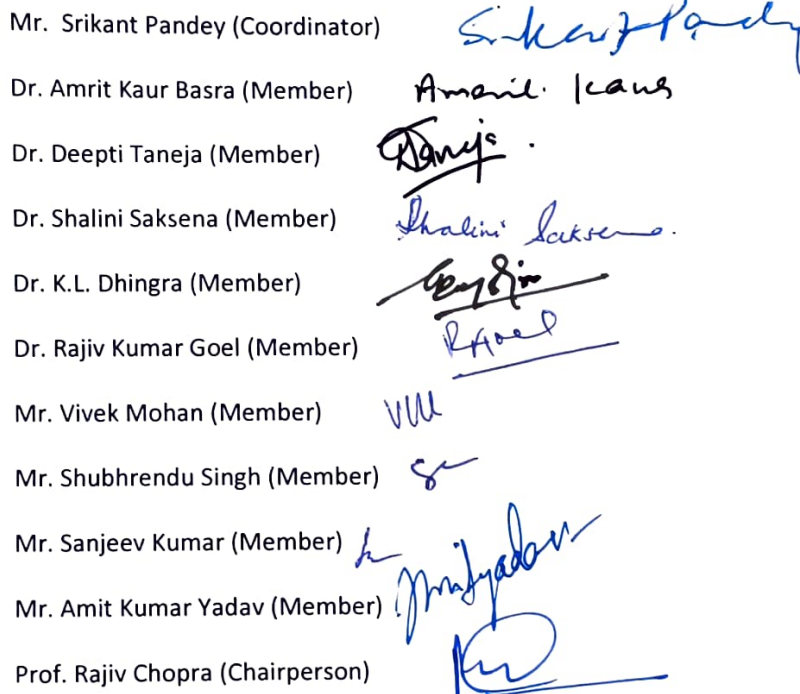 Mr. Srikant Pandey (Coordinator) Srikant Pandey
Dr. Amrit Kaur Basra (Member) Amrit Kaur
Dr. Deepti Taneja (Member) DTaneja
Dr. Shalini Saksena (Member) Shalini Saksena
Dr. K.L. Dhingra (Member)
Dr. Rajiv Kumar Goel (Member) RKGoel
Mr. Vivek Mohan (Member)
Mr. Shubhrendu Singh (Member)
Mr. Sanjeev Kumar (Member)
Mr. Amit Kumar Yadav (Member) Amityadav
Prof. Rajiv Chopra (Chairperson)